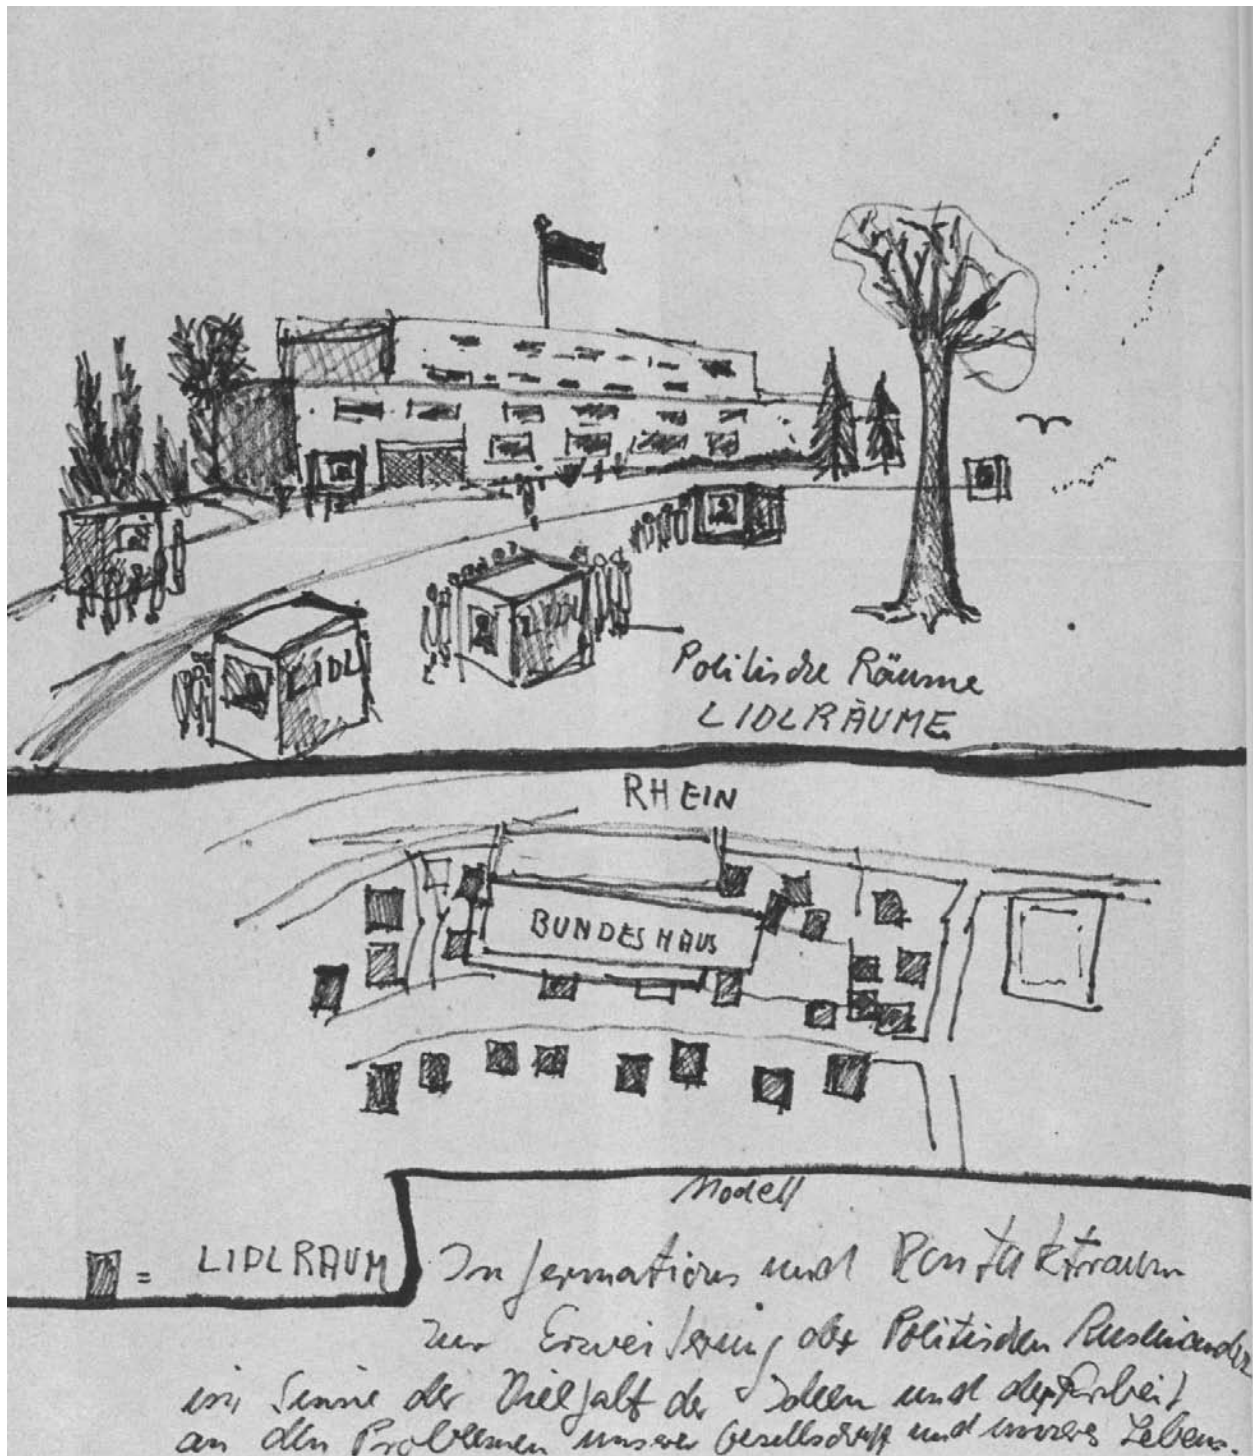 LIDL
Politische Räume
LIDLRÄUME
RHEIN
BUNDESHAUS
Modell
= LIDLRAUM
Informations und Kontaktraum
zur Erweiterung der Politischen Auseinander
im Sinne der Vielfalt der Ideen und der Arbeit
an den Problemen unserer Gesellschaft und unseres Lebens.